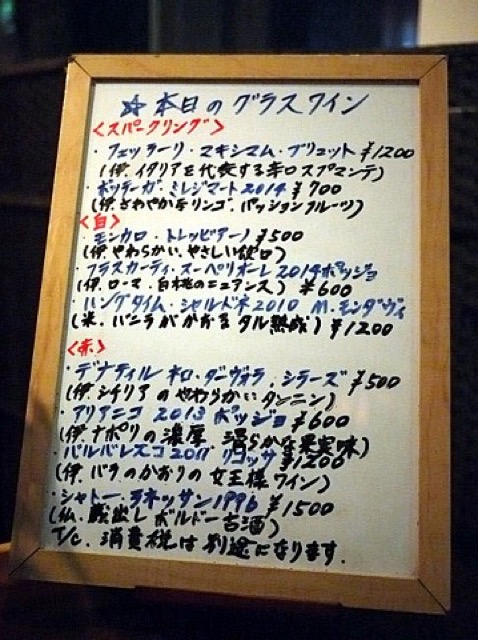 ☆本日のグラスワイン
<スパークリング>
・フェッラーリ・マキシマム・ブリュット ¥1200
(伊.イタリアを代表する辛口スプマンテ)
・ボッテーガ.ミレジマート2014 ¥700
(伊.さわやかなリンゴ.パッションフルーツ)
<白>
・モンカロ・トレッビアーノ ¥500
(伊.やわらかい.やさしい飲口)
・フラスカーティ・スーペリオーレ2014ポッジョ
(伊.ローマ.白桃のニュアンス) ¥600
・ハングタイム・シャルドネ2010 M.モンダヴィ
(米.バニラがかおるタル熟成) ¥1200
<赤>
・デナティル ネロ・ダーヴォラ.シラーズ ¥500
(伊.シチリアのやわらかいタンニン)
・アリアニコ 2013 ポッジョ ¥600
(伊.ナポリの濃厚.滑らかな果実味)
・バルバレスコ2011 リコッサ ¥1200
(伊.バラのかおりの女王様ワイン)
・シャトー・ラネッサン1996 ¥1500
(仏.蔵出しボルドー古酒)
T/C.消費税は別途になります.